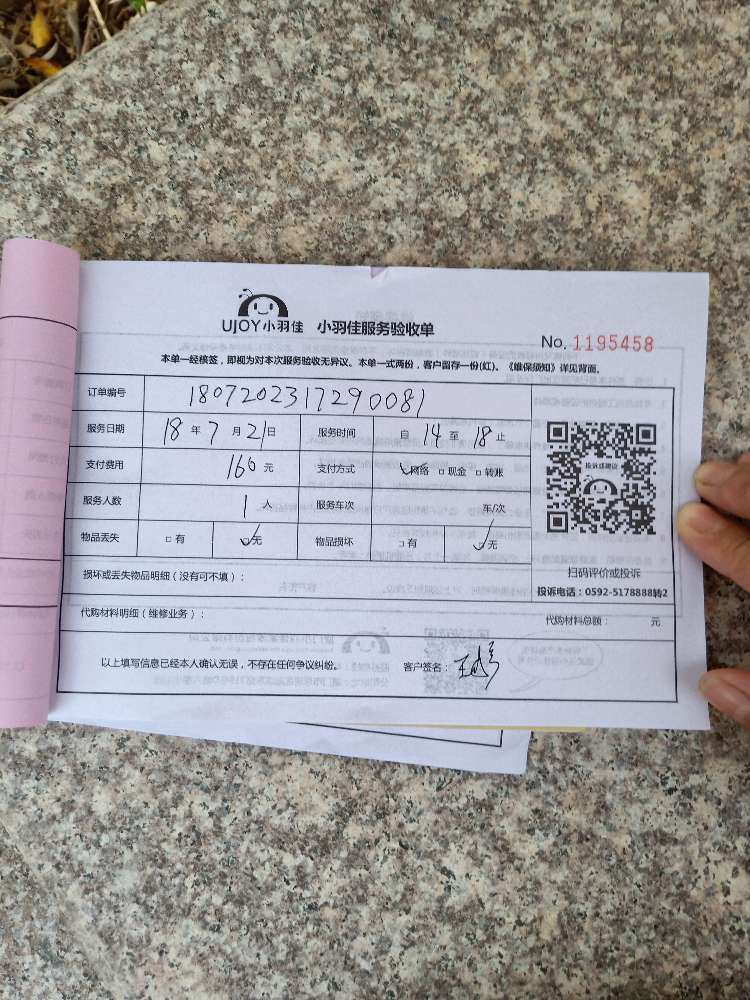 UJOY小羽佳 小羽佳服务验收单
No. 1195458
本单一经核签，即视为对本次服务验收无异议。本单一式两份，客户留存一份(红)。《维保须知》详见背面。
订单编号 1807202317290081
服务日期 18年7月21日 服务时间 自14至18止
支付费用 160元 支付方式 ✓网络 □现金 □转账
服务人数 1人 服务车次 车/次
物品丢失 □有 ✓无 物品损坏 □有 ✓无
投诉或建议
扫码评价或投诉
投诉电话：0592-5178888转2
损坏或丢失物品明细（没有可不填）：
代购材料明细（维修业务）： 代购材料总额： 元
以上填写信息已经本人确认无误，不存在任何争议纠纷。 客户签名：